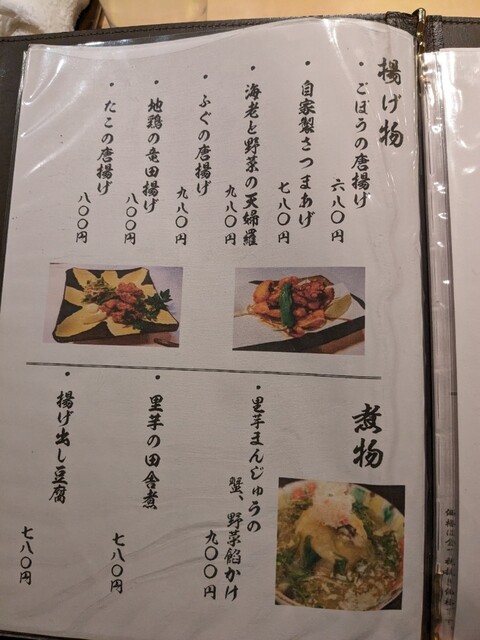 揚げ物
・ごぼうの唐揚げ
六八〇円
・自家製さつまあげ
七八〇円
・海老と野菜の天婦羅
九八〇円
・ふぐの唐揚げ
九八〇円
・地鶏の竜田揚げ
八〇〇円
・たこの唐揚げ
八〇〇円
煮物
・里芋まんじゅうの
蟹、野菜餡かけ
九〇〇円
・里芋の田舎煮
七八〇円
・揚げ出し豆腐
七八〇円